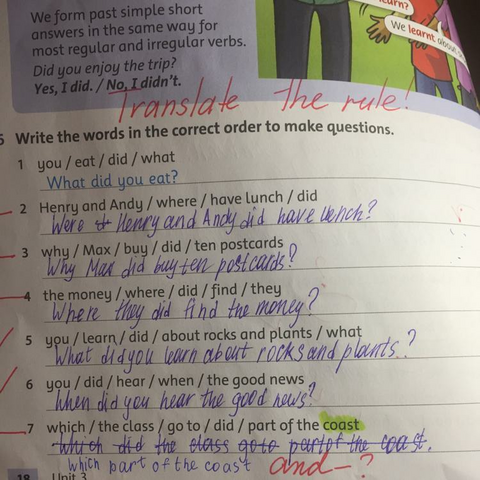 We form past simple short
answers in the same way for
most regular and irregular verbs.
Did you enjoy the trip?
Yes, I did. / No, I didn't.
learn?
We learnt about
Translate the rule!
5 Write the words in the correct order to make questions.
1 you / eat / did / what
What did you eat?
2 Henry and Andy / where / have lunch / did
Were Henry and Andy did have lench?
3 why / Max / buy / did / ten postcards
Why Max did buy ten postcards?
4 the money / where / did / find / they
Where they did find the money?
5 you / learn / did / about rocks and plants / what
What did you learn about rocks and plants?
6 you / did / hear / when / the good news
When did you hear the good news?
7 which / the class / go to / did / part of the coast
Which did the class go to part of the coast.
which part of the coast and - ?
18 Unit 3